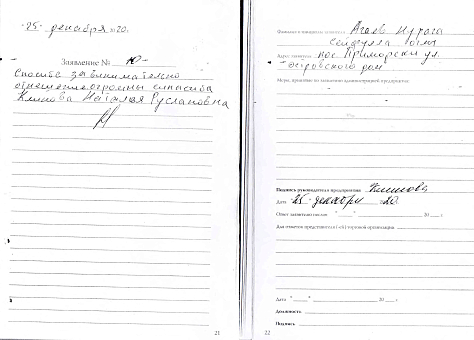 "25" декабря 20.
Заявление № 10
Спасибо за внимательно
отношение огромны спасиба
Климова Наталия Руслановна
21
Фамилия и инициалы заявителя Агаев Нурага
Сейфулла оглы
Адрес заявителя пос Приморски ул.
Островского дом
Меры, принятые по заявлению администрацией предприятия:
Подпись руководителя предприятия Климова
Дата "25" декабри 20.
Ответ заявителю послан " " 20 г.
Для отметок представителя (-ей) торговой организации
Дата " " 20 г.
Должность
Подпись
22